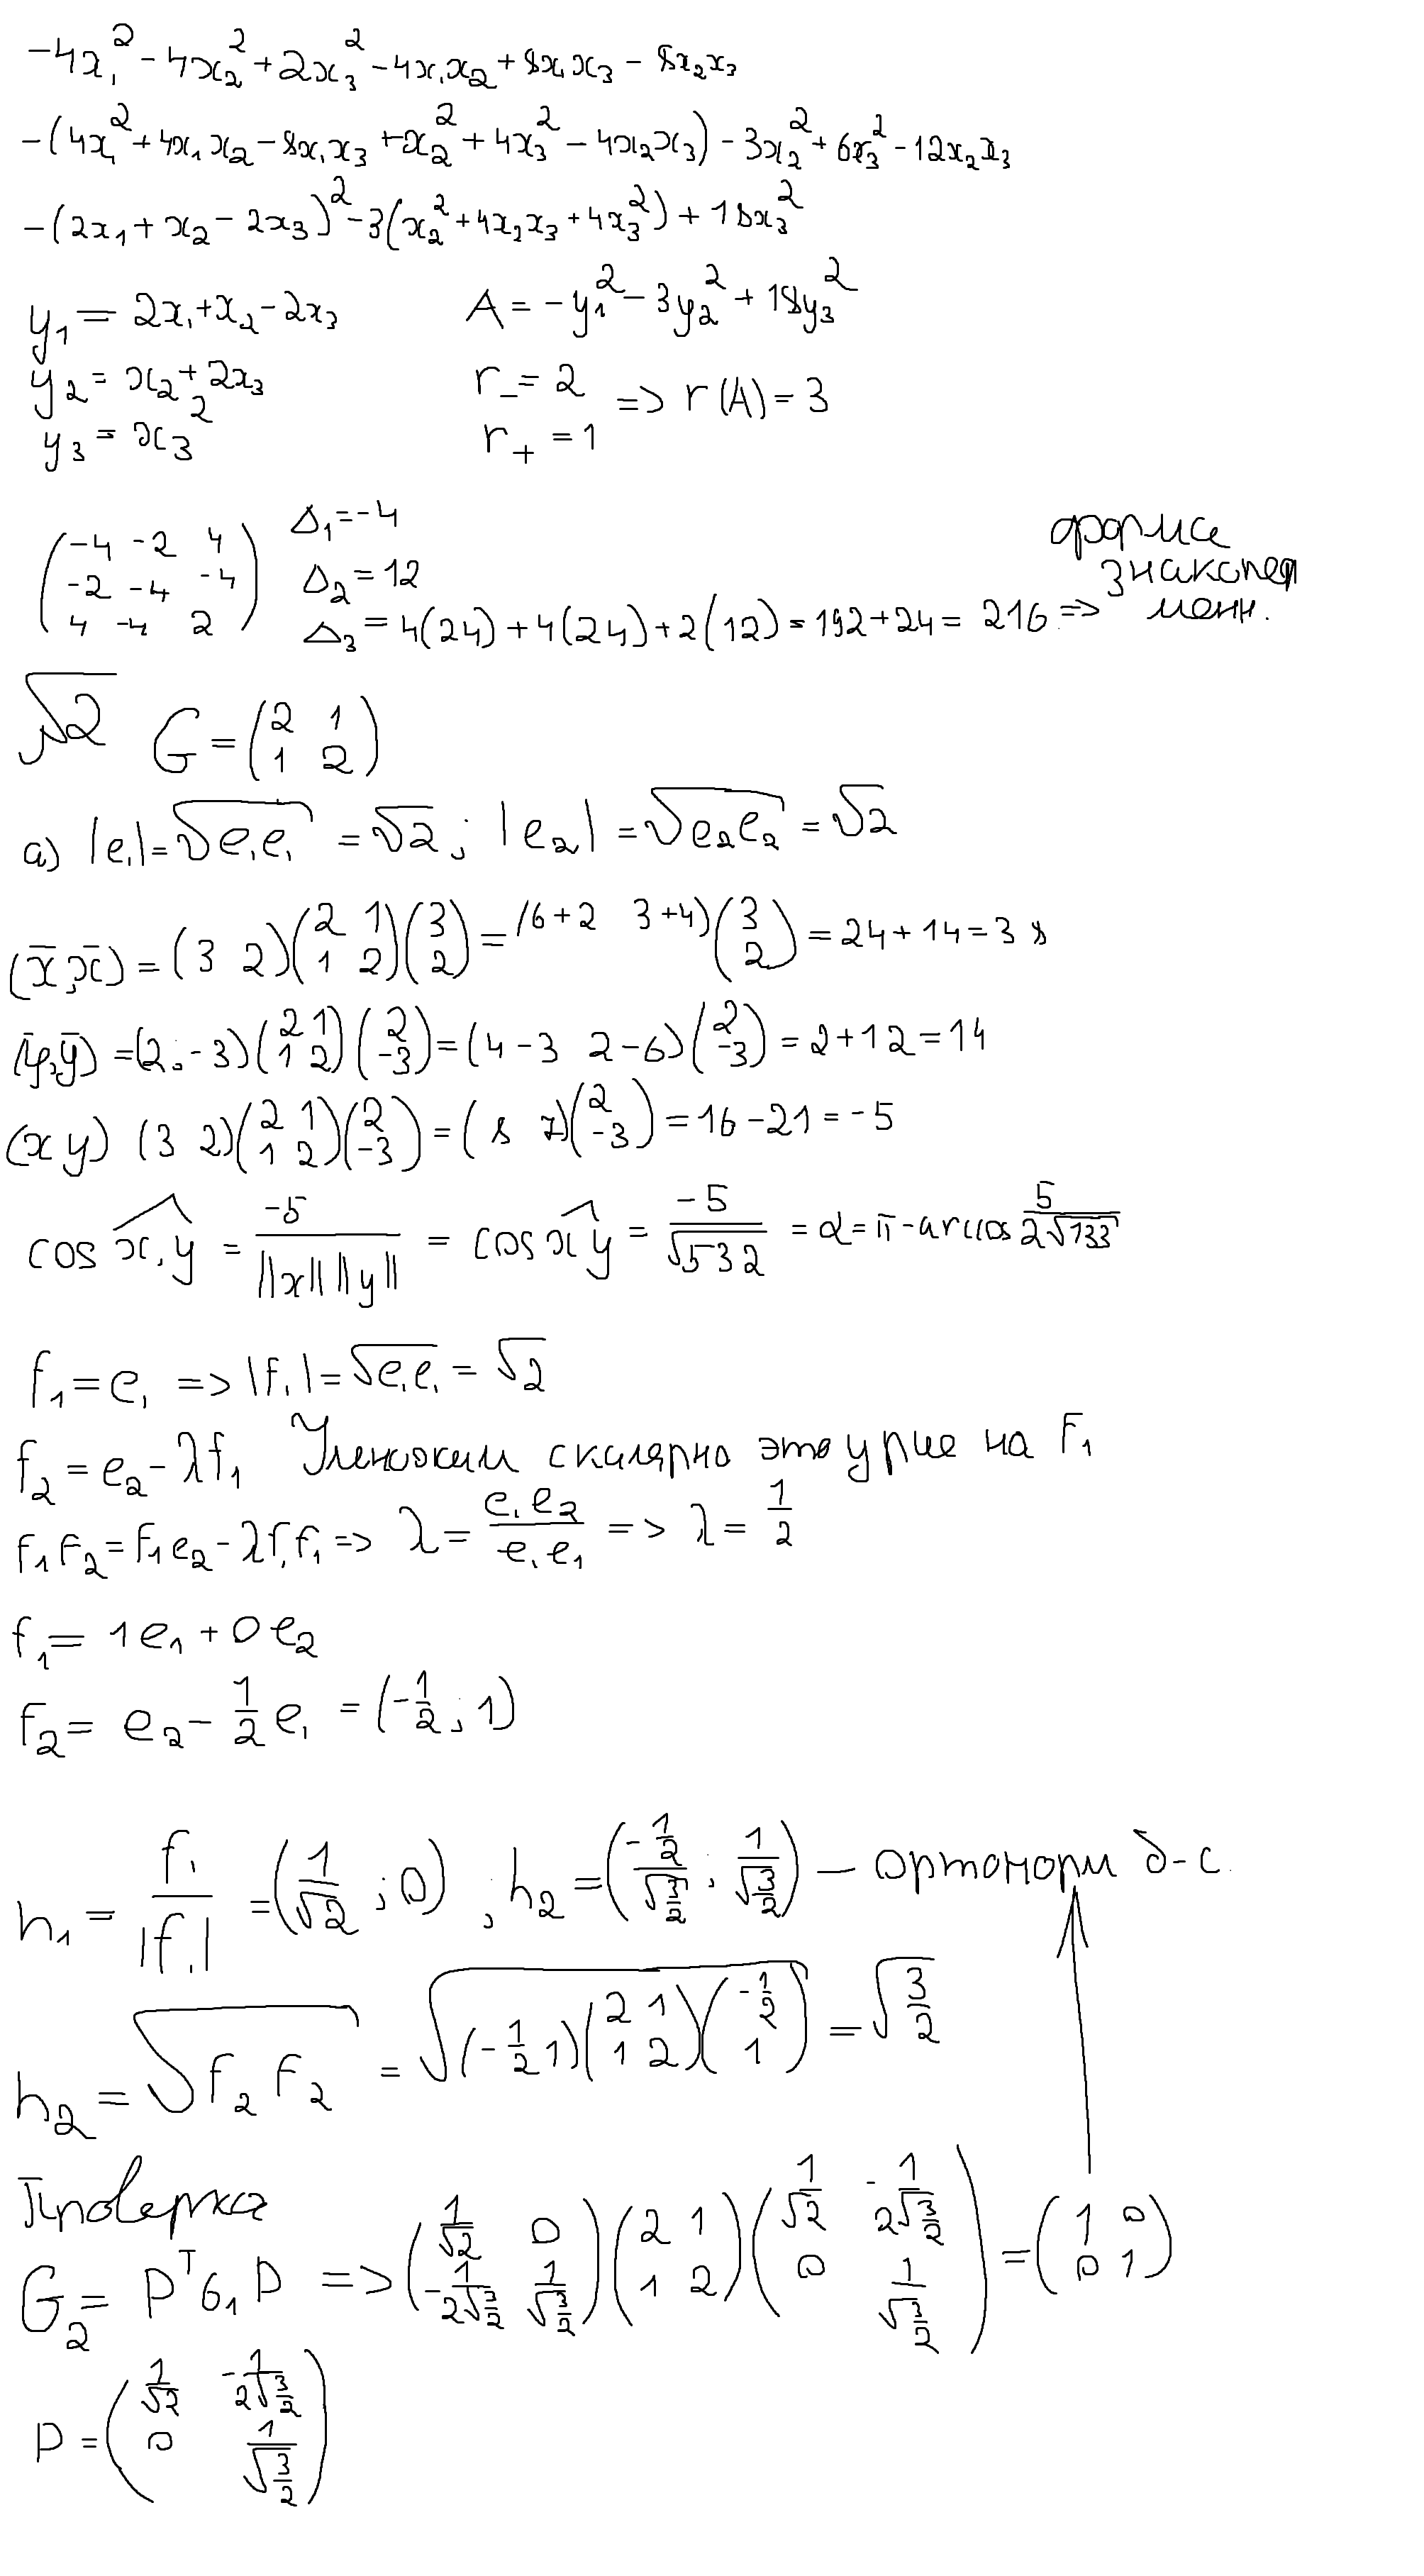 -4x₁² - 4x₂² + 2x₃² - 4x₁x₂ + 8x₁x₃ - 8x₂x₃
-(4x₁² + 4x₁x₂ - 8x₁x₃ + x₂² + 4x₃² - 4x₂x₃) - 3x₂² + 6x₃² - 12x₂x₃
-(2x₁ + x₂ - 2x₃)² - 3(x₂² + 4x₂x₃ + 4x₃²) + 18x₃²
y₁ = 2x₁ + x₂ - 2x₃   A = -y₁² - 3y₂² + 18y₃²
y₂ = x₂ + 2x₃   r₋ = 2
y₃ = x₃²   r₊ = 1   => r(A) = 3
(-4 -2 4; -2 -4 -4; 4 -4 2)   Δ₁ = -4
Δ₂ = 12
Δ₃ = 4(24) + 4(24) + 2(12) = 192 + 24 = 216 => форма знакопер менн.
√2   G = (2 1; 1 2)
а) |e₁| = √e₁e₁ = √2; |e₂| = √e₂e₂ = √2
(x̄,x̄) = (3 2)(2 1; 1 2)(3; 2) = (6+2 3+4)(3; 2) = 24 + 14 = 38
(ȳ,ȳ) = (2; -3)(2 1; 1 2)(2; -3) = (4-3 2-6)(2; -3) = 2 + 12 = 14
(x y) (3 2)(2 1; 1 2)(2; -3) = (8 7)(2; -3) = 16 - 21 = -5
cos x,y = -5/(||x|| ||y||) = cos x y = -5/√532 = α = π - arccos 5/(2√133)
f₁ = e₁ => |f₁| = √e₁e₁ = √2
f₂ = e₂ - λf₁ Умножим скалярно это урие на F₁
F₁F₂ = F₁e₂ - λf₁f₁ => λ = e₁e₂/e₁e₁ => λ = 1/2
f₁ = 1e₁ + 0e₂
F₂ = e₂ - 1/2 e₁ = (-1/2; 1)
h₁ = f₁/|f₁| = (1/√2; 0); h₂ = (-1/2/√(3/2); 1/√(3/2)) — ортонорм б-с
h₂ = √F₂F₂ = √(-1/2 1)(2 1; 1 2)(-1/2; 1) = √(3/2)
Проверка
G₂ = PᵀG₁P => (1/√2 0; -1/2√(3/2) 1/√(3/2))(2 1; 1 2)(1/√2 -1/2√(3/2); 0 1/√(3/2)) = (1 0; 0 1)
P = (1/√2 -1/2√(3/2); 0 1/√(3/2))